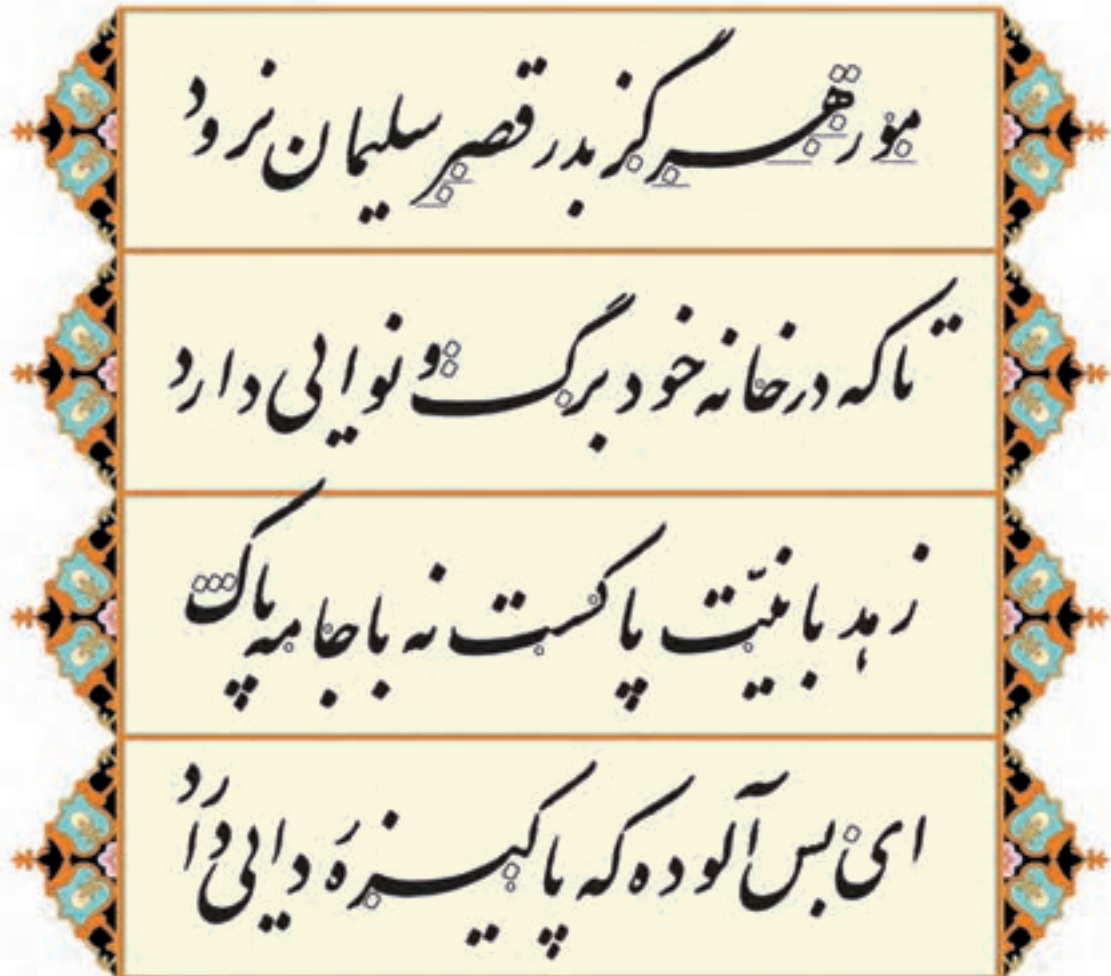 مور هرگز بدر قصر سلیمان نرود
تا که در خانه خود برگ و نوایی دارد
زهد با نیّت پاکست نه با جامه پاک
ای بس آلوده که پاکیزه رَدایی دارَد